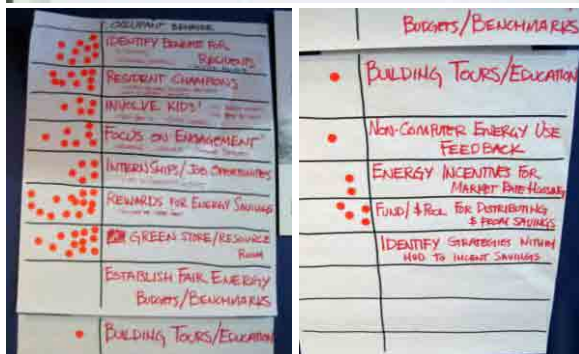 OCCUPANT BEHAVIOR
IDENTIFY BENEFIT FOR
RESIDENTS
RESIDENT CHAMPIONS
INVOLVE KIDS!
FOCUS ON ENGAGEMENT
INTERNSHIPS/JOB OPPORTUNITIES
REWARDS FOR ENERGY SAVINGS
GREEN STORE/RESOURCE
ROOM
ESTABLISH FAIR ENERGY
BUDGETS/BENCHMARKS
BUILDING TOURS/EDUCATION
BUDGETS/BENCHMARKS
BUILDING TOURS/EDUCATION
NON-COMPUTER ENERGY USE
FEEDBACK
ENERGY INCENTIVES FOR
MARKET RATE HOUSING
FUND/$ POOL FOR DISTRIBUTING
$ FROM SAVINGS
IDENTIFY STRATEGIES WITHIN
HUD TO INCENT SAVINGS